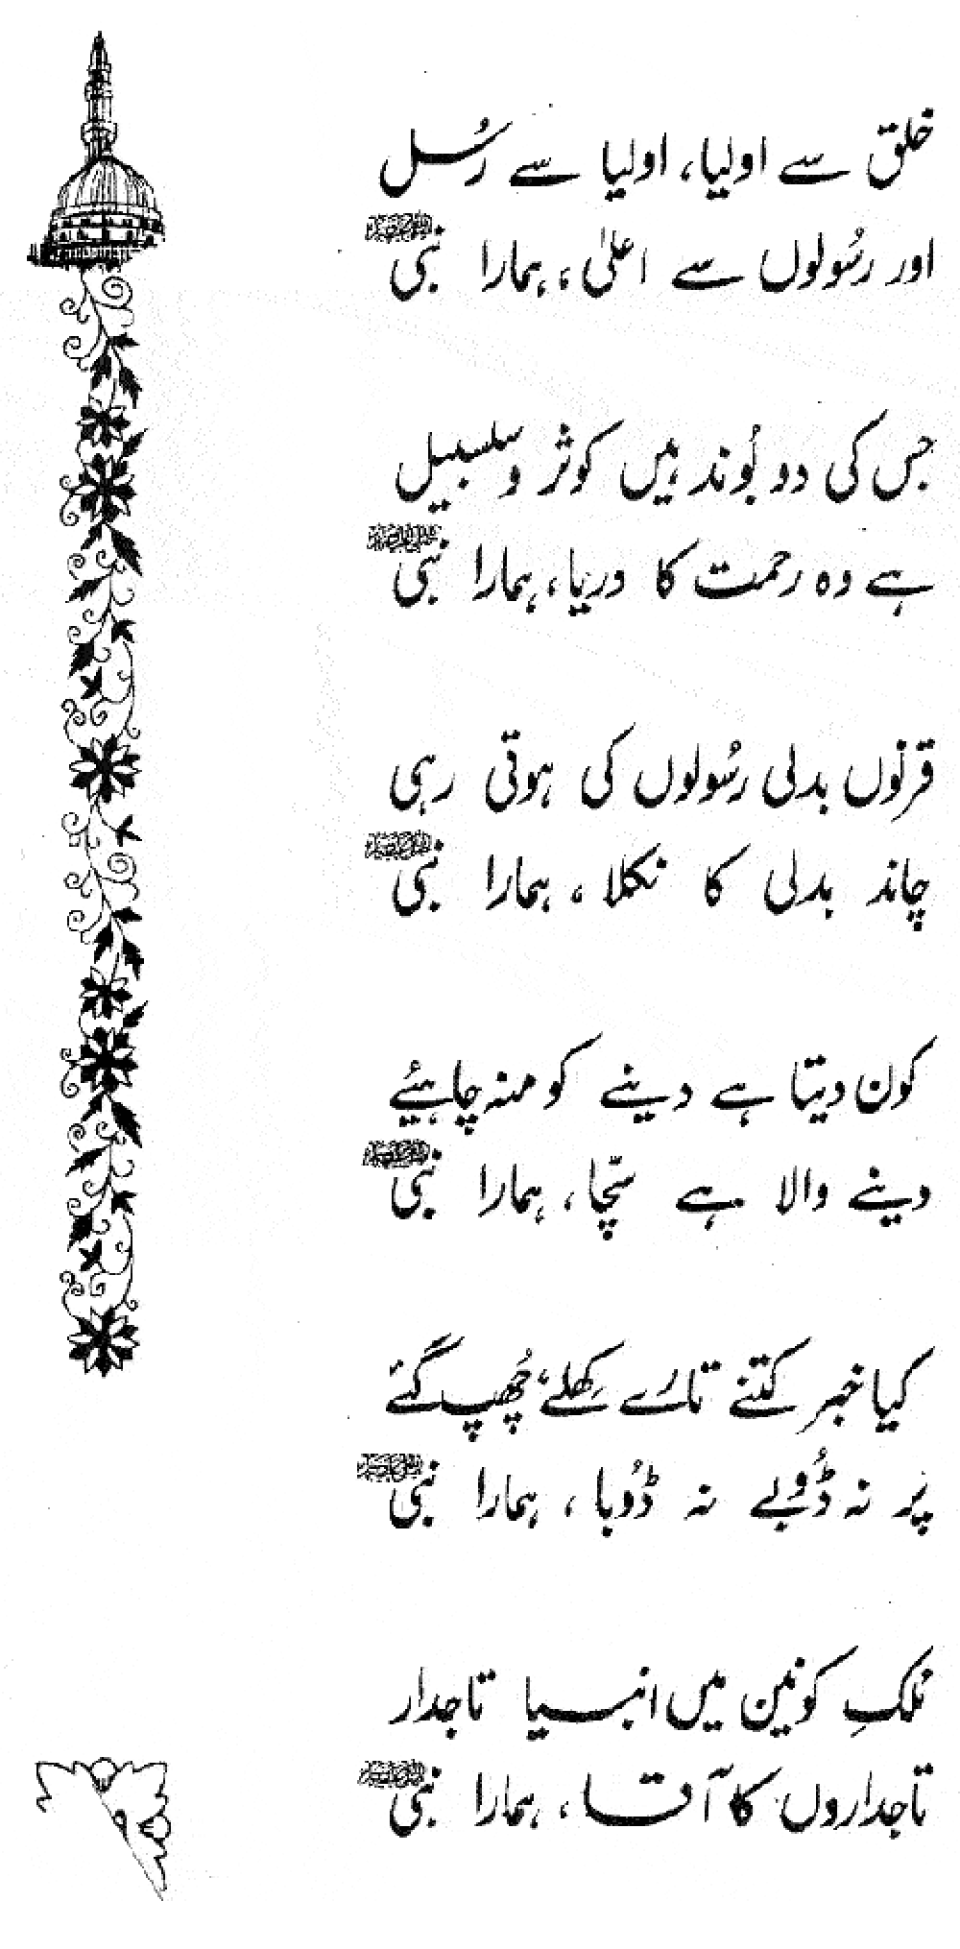 خلق سے اولیا، اولیا سے رُسل
اور رسُولوں سے اعلیٰ، ہمارا نبی ﷺ
جس کی دو بُوند ہیں کوثر و سلسبیل
ہے وہ رحمت کا دریا، ہمارا نبی ﷺ
قرنوں بدلی رسُولوں کی ہوتی رہی
چاند بدلی کا نکلا، ہمارا نبی ﷺ
کون دیتا ہے دینے کو منہ چاہیئے
دینے والا ہے سچّا، ہمارا نبی ﷺ
کیا خبر کتنے تارے کِھلے، چُھپ گئے
پَر نہ ڈُوبے نہ ڈُوبا، ہمارا نبی ﷺ
مُلکِ کونین میں انبیا تاجدار
تاجداروں کا آقا، ہمارا نبی ﷺ